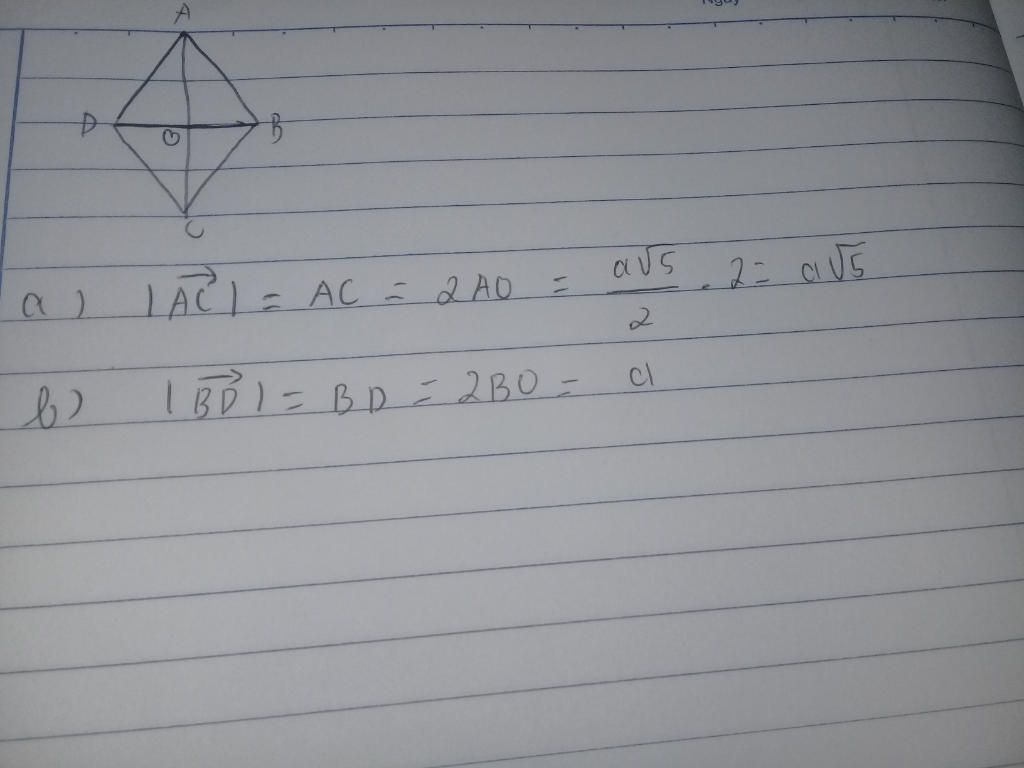 Ngày
A
D
O
B
C
a) |\overrightarrow{AC}| = AC = 2AO = \frac{a\sqrt{5}}{2} . 2 = a\sqrt{5}
b) |\overrightarrow{BD}| = BD = 2BO = a